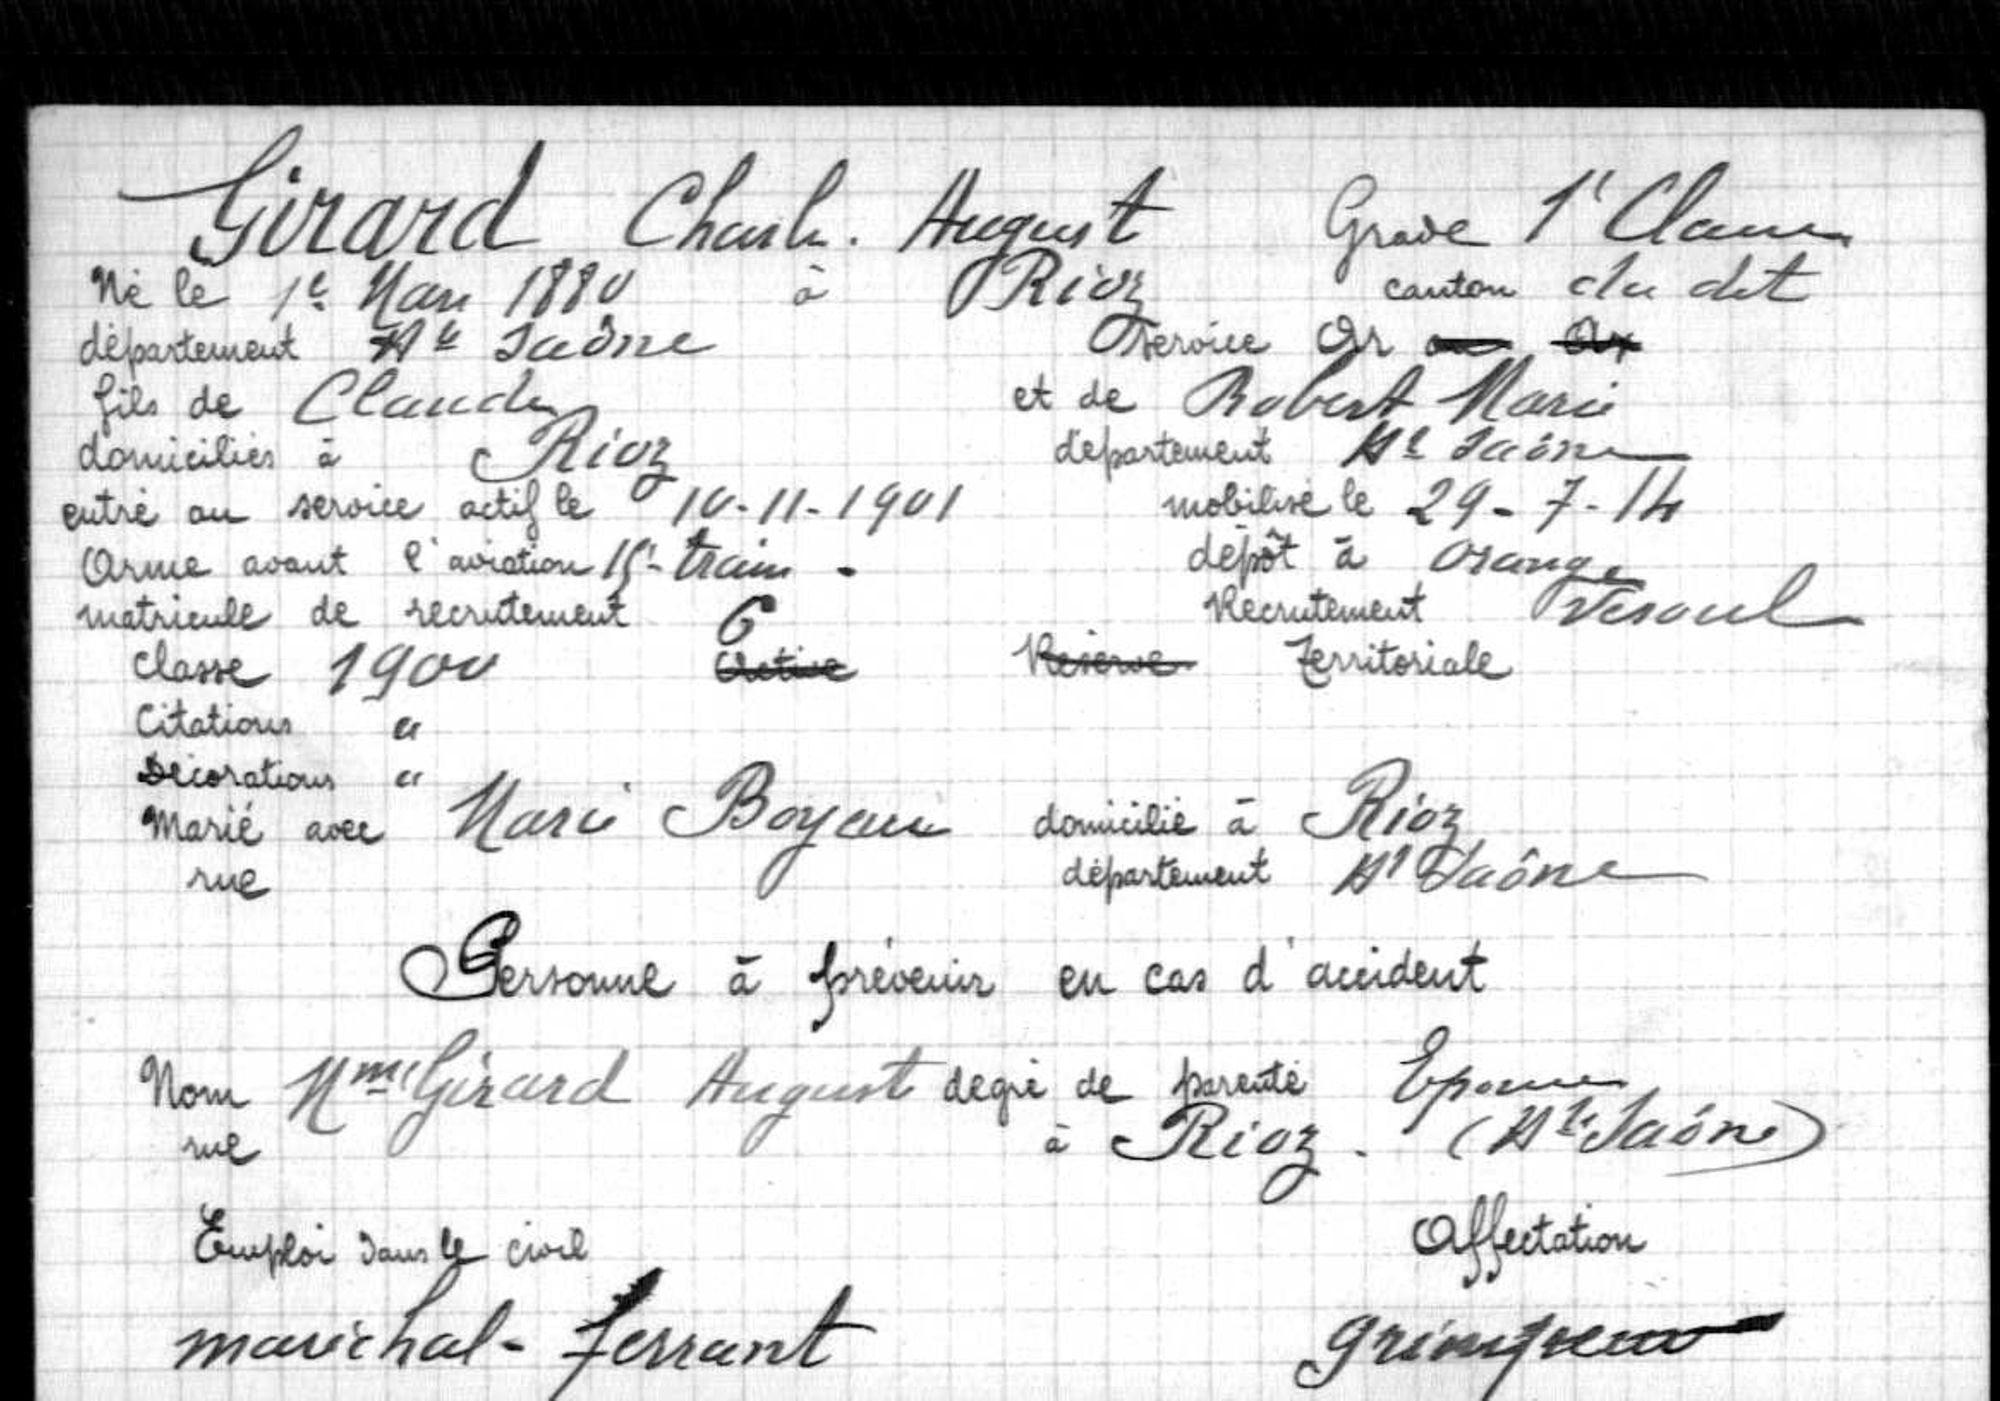 Girard Charles August Grade 1e Classe
Né le 1er Mars 1880 à Rioz canton du dit
département Hte Saône service Or
fils de Claude et de Robert Marie
domiciliés à Rioz département Hte Saône
entré au service actif le 10-11-1901 mobilisé le 29-7-14
Arme avant l'aviation 15e train - dépôt à Orange
matricule de recrutement 6 Recrutement Vesoul
Classe 1900 Active Réserve Territoriale
Citations "
Décorations "
Marié avec Marie domicilié à Rioz
rue département Hte Saône
Personne à prévenir en cas d'accident
Nom Mme Girard August degré de parenté Epouse
rue à Rioz. (Hte Saône)
Emploi dans le civil Affectation
maréchal-ferrant